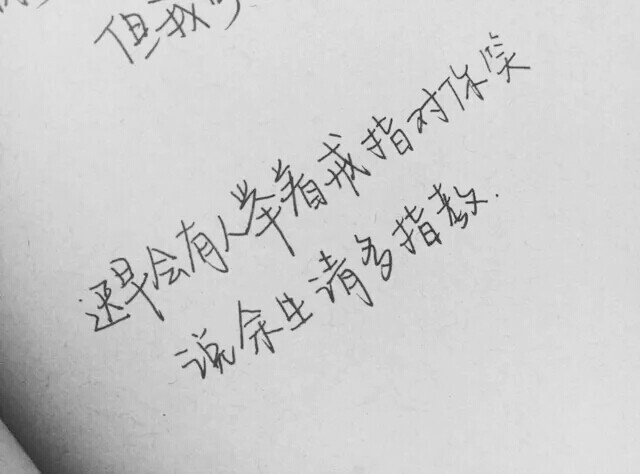 但我
迟早会有人举着戒指对你笑
说余生请多指教.